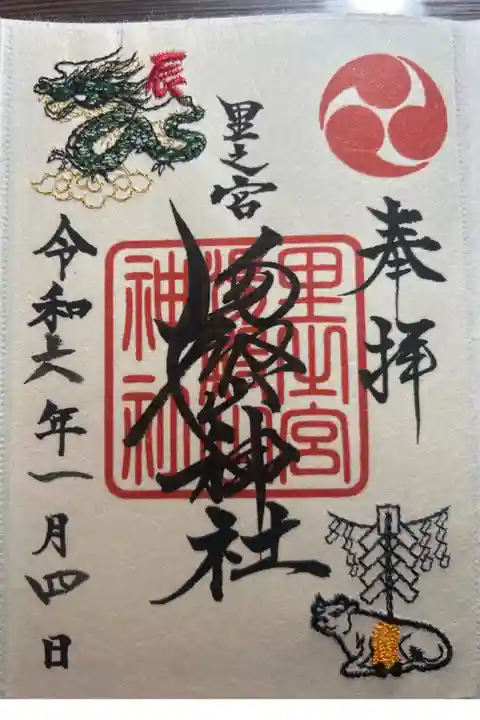 奉拝
里之宮
湯殿山神社
里之宮
神社
辰
令和六年一月四日